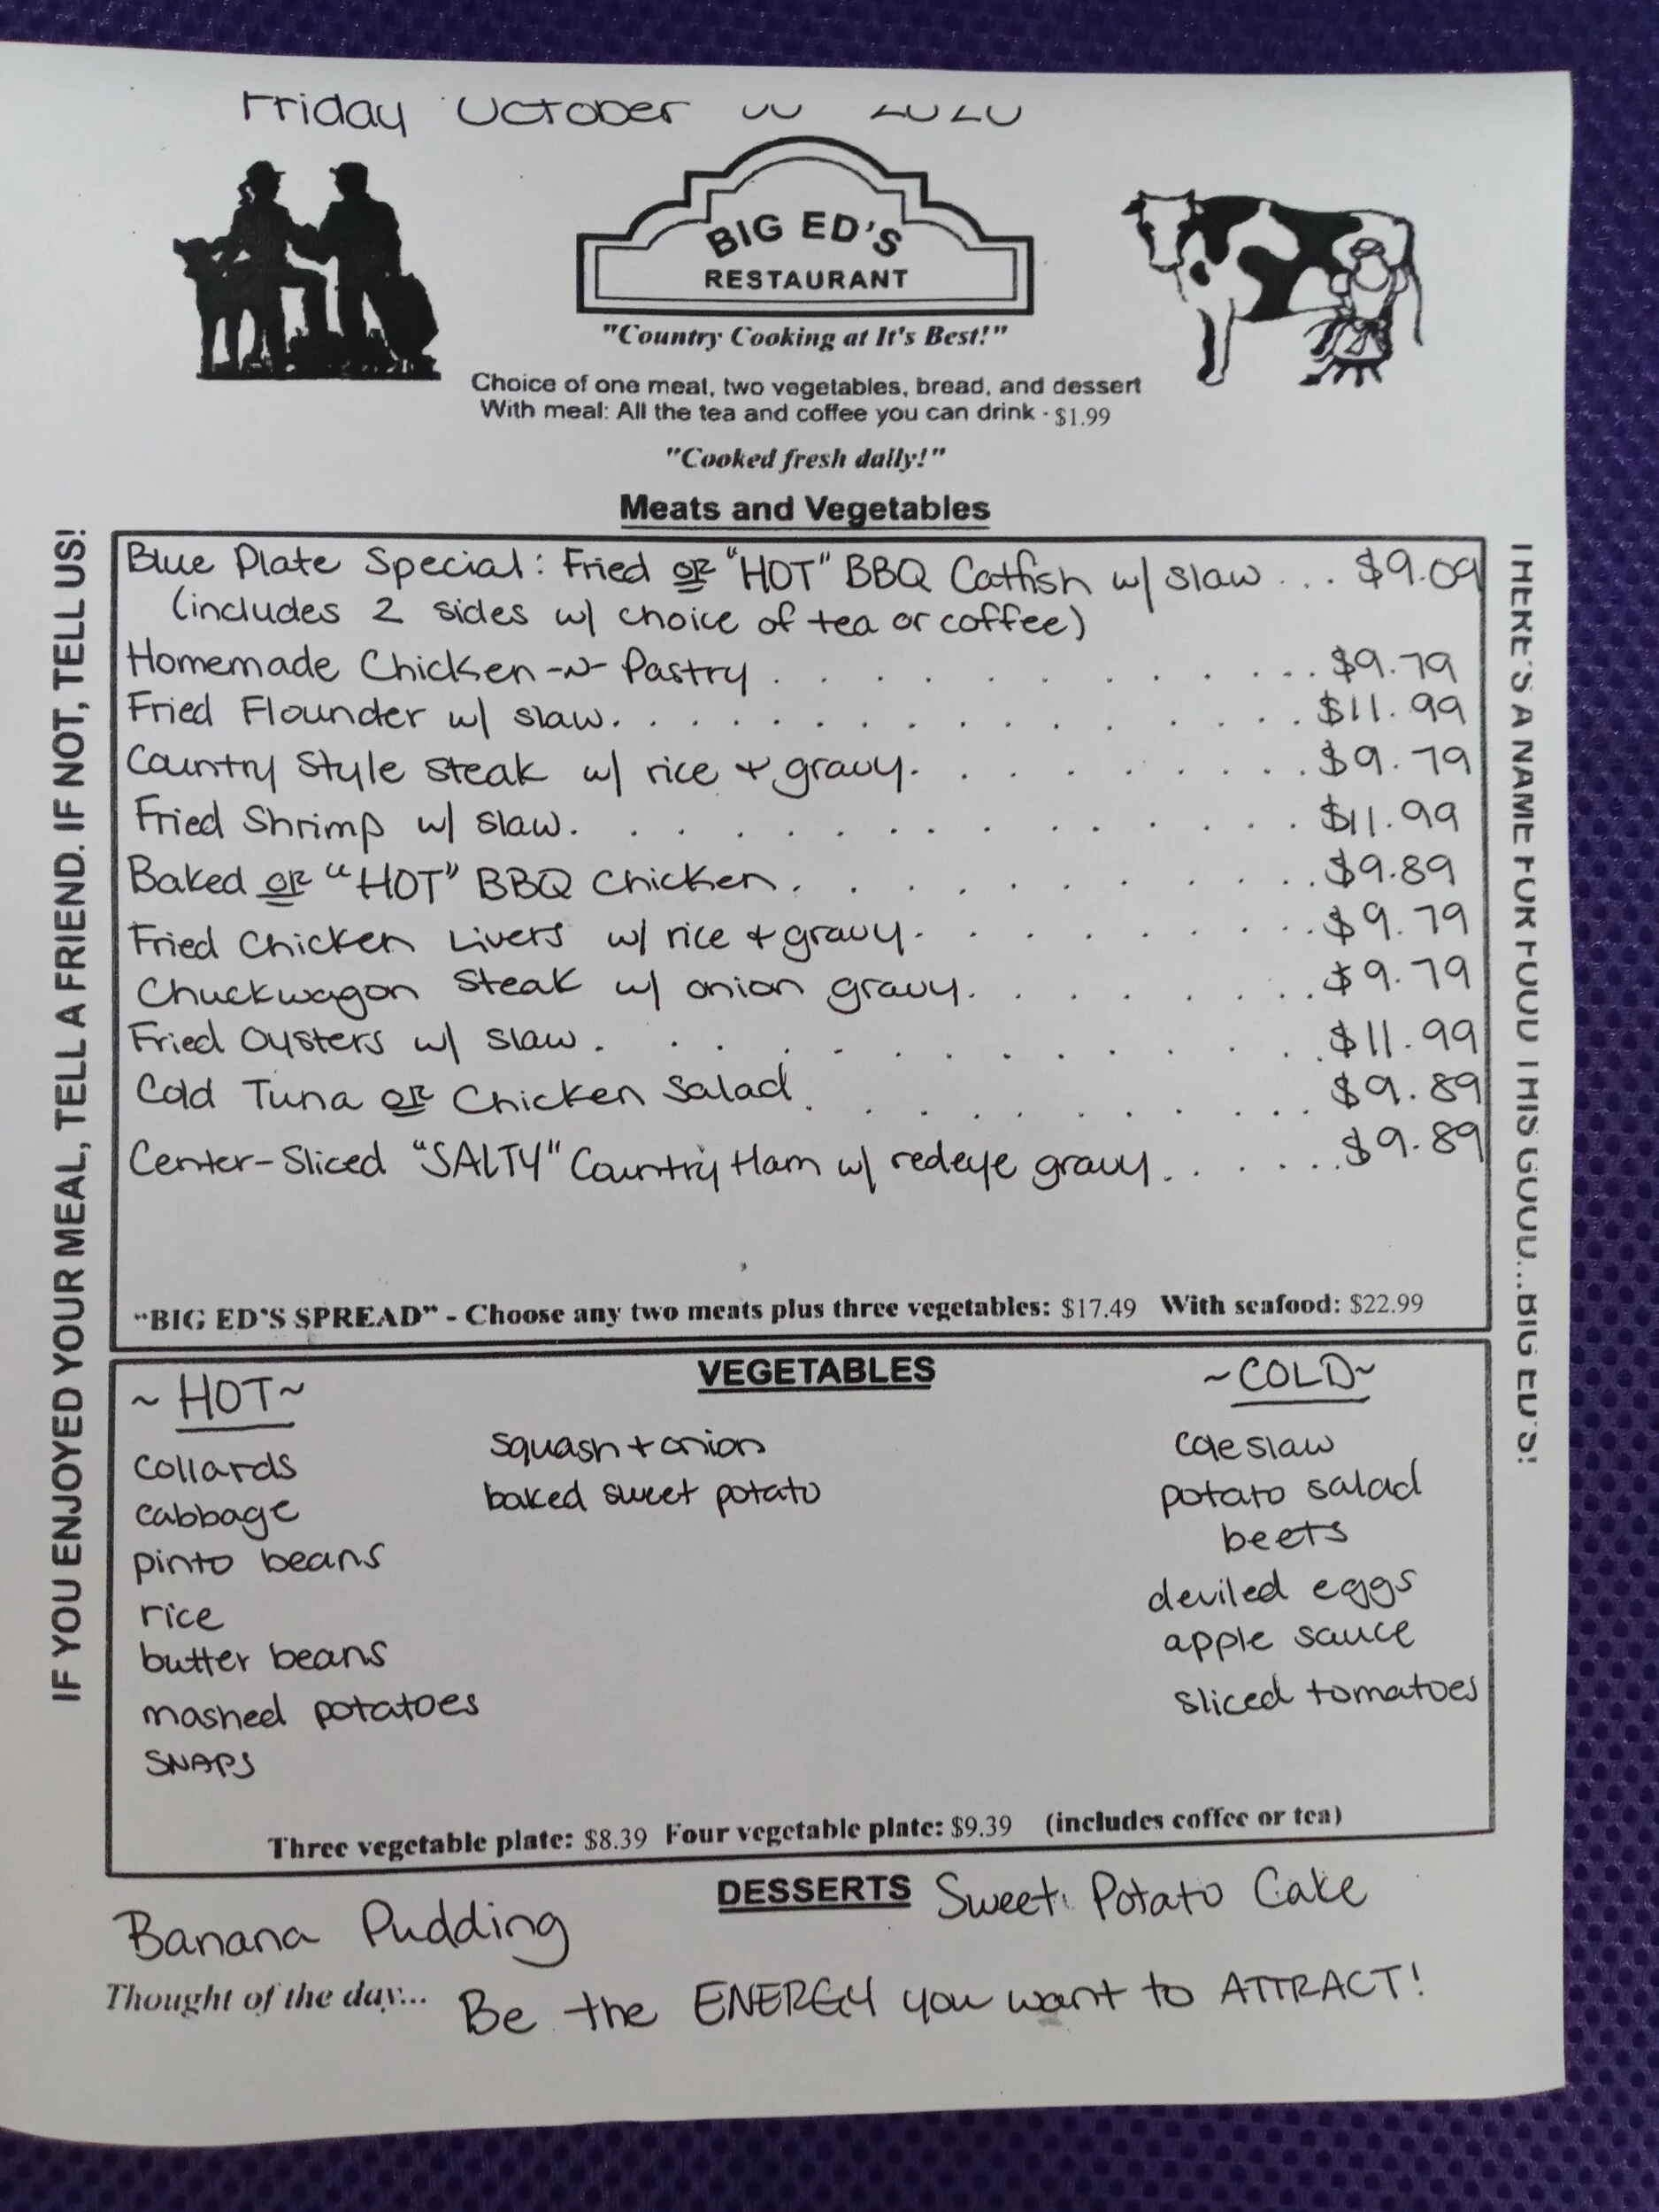 Friday October
BIG ED'S
RESTAURANT
"Country Cooking at It's Best!"
Choice of one meat, two vegetables, bread, and dessert
With meal: All the tea and coffee you can drink - $1.99
"Cooked fresh daily!"
Meats and Vegetables
Blue Plate Special: Fried OR "HOT" BBQ Catfish w/ slaw ... $9.09
(includes 2 sides w/ choice of tea or coffee)
Homemade Chicken-N-Pastry . . . . . . . . . . . . $9.79
Fried Flounder w/ slaw. . . . . . . . . . . . . . $11.99
Country Style Steak w/ rice + gravy. . . . . . . . . . $9.79
Fried Shrimp w/ slaw. . . . . . . . . . . . . . $11.99
Baked OR "HOT" BBQ Chicken. . . . . . . . . . . $9.89
Fried Chicken Livers w/ rice + gravy. . . . . . . . . $9.79
Chuckwagon Steak w/ onion gravy. . . . . . . . . $9.79
Fried Oysters w/ slaw . . . . . . . . . . . . . . $11.99
Cold Tuna OR Chicken Salad. . . . . . . . . . . $9.89
Center-Sliced "SALTY" Country Ham w/ redeye gravy. . . . . . $9.89
"BIG ED'S SPREAD" - Choose any two meats plus three vegetables: $17.49 With seafood: $22.99
VEGETABLES
~HOT~
collards
cabbage
pinto beans
rice
butter beans
mashed potatoes
SNAPS
squash + onion
baked sweet potato
~COLD~
coleslaw
potato salad
beets
deviled eggs
apple sauce
sliced tomatoes
Three vegetable plate: $8.39 Four vegetable plate: $9.39 (includes coffee or tea)
DESSERTS
Banana Pudding
Sweet Potato Cake
Thought of the day... Be the ENERGY you want to ATTRACT!
IF YOU ENJOYED YOUR MEAL, TELL A FRIEND. IF NOT, TELL US!
THERE'S A NAME FOR FOOD THIS GOOD...BIG ED'S!